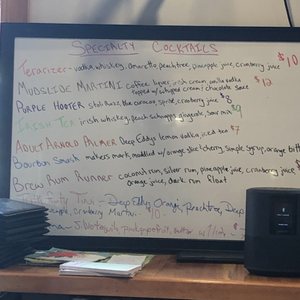 SPECIALTY COCKTAILS
Terarizer - vodka, whiskey, amaretto, peachtree, pineapple juice, cranberry juice $10
MUDSLIDE MARTINI coffee liquor, irish cream, vanilla vodka $12
topped w/ whipped cream + chocolate sauce
PURPLE HOOTER stoli razz, blue curacao, sprite, cranberry juice $8
IRISH TEA irish whiskey, peach schnapps, gingerale, sour mix $9
ADULT ARNOLD PALMER Deep Eddys lemon vodka, iced tea $7
Bourbon Smash makers mark, muddled w/ orange slice + cherry, Simple syrup, orange bitters
BREW RUM RUNNER coconut rum, silver rum, pineapple juice, cranberry juice $
orange juice, dark rum float
Tini - Deep Eddy Orange, Peachtree, Deep
pineapple, cranberry Martini - 10 -